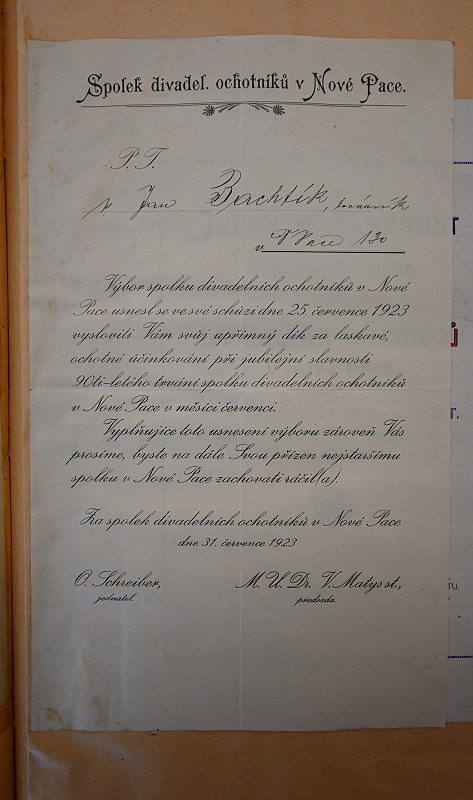 Spolek divadel. ochotníků v Nové Pace.
P. T.
p Jan Bachtík,
v N Pace 130
Výbor spolku divadelních ochotníků v Nové
Pace usnesl se ve své schůzi dne 25. července 1923
vysloviti Vám svůj upřímný dík za laskavé,
ochotné účinkování při jubilejní slavnosti
90ti-letého trvání spolku divadelních ochotníků
v Nové Pace v měsíci červenci.
Vyplňujíce toto usnesení výboru zároveň Vás
prosíme, byste na dále Svou přízeň nejstaršímu
spolku v Nové Pace zachovati ráčil(a).
Za spolek divadelních ochotníků v Nové Pace
dne 31. července 1923
O. Schreiber, M. U. Dr. V. Matys st.,
jednatel. předseda.